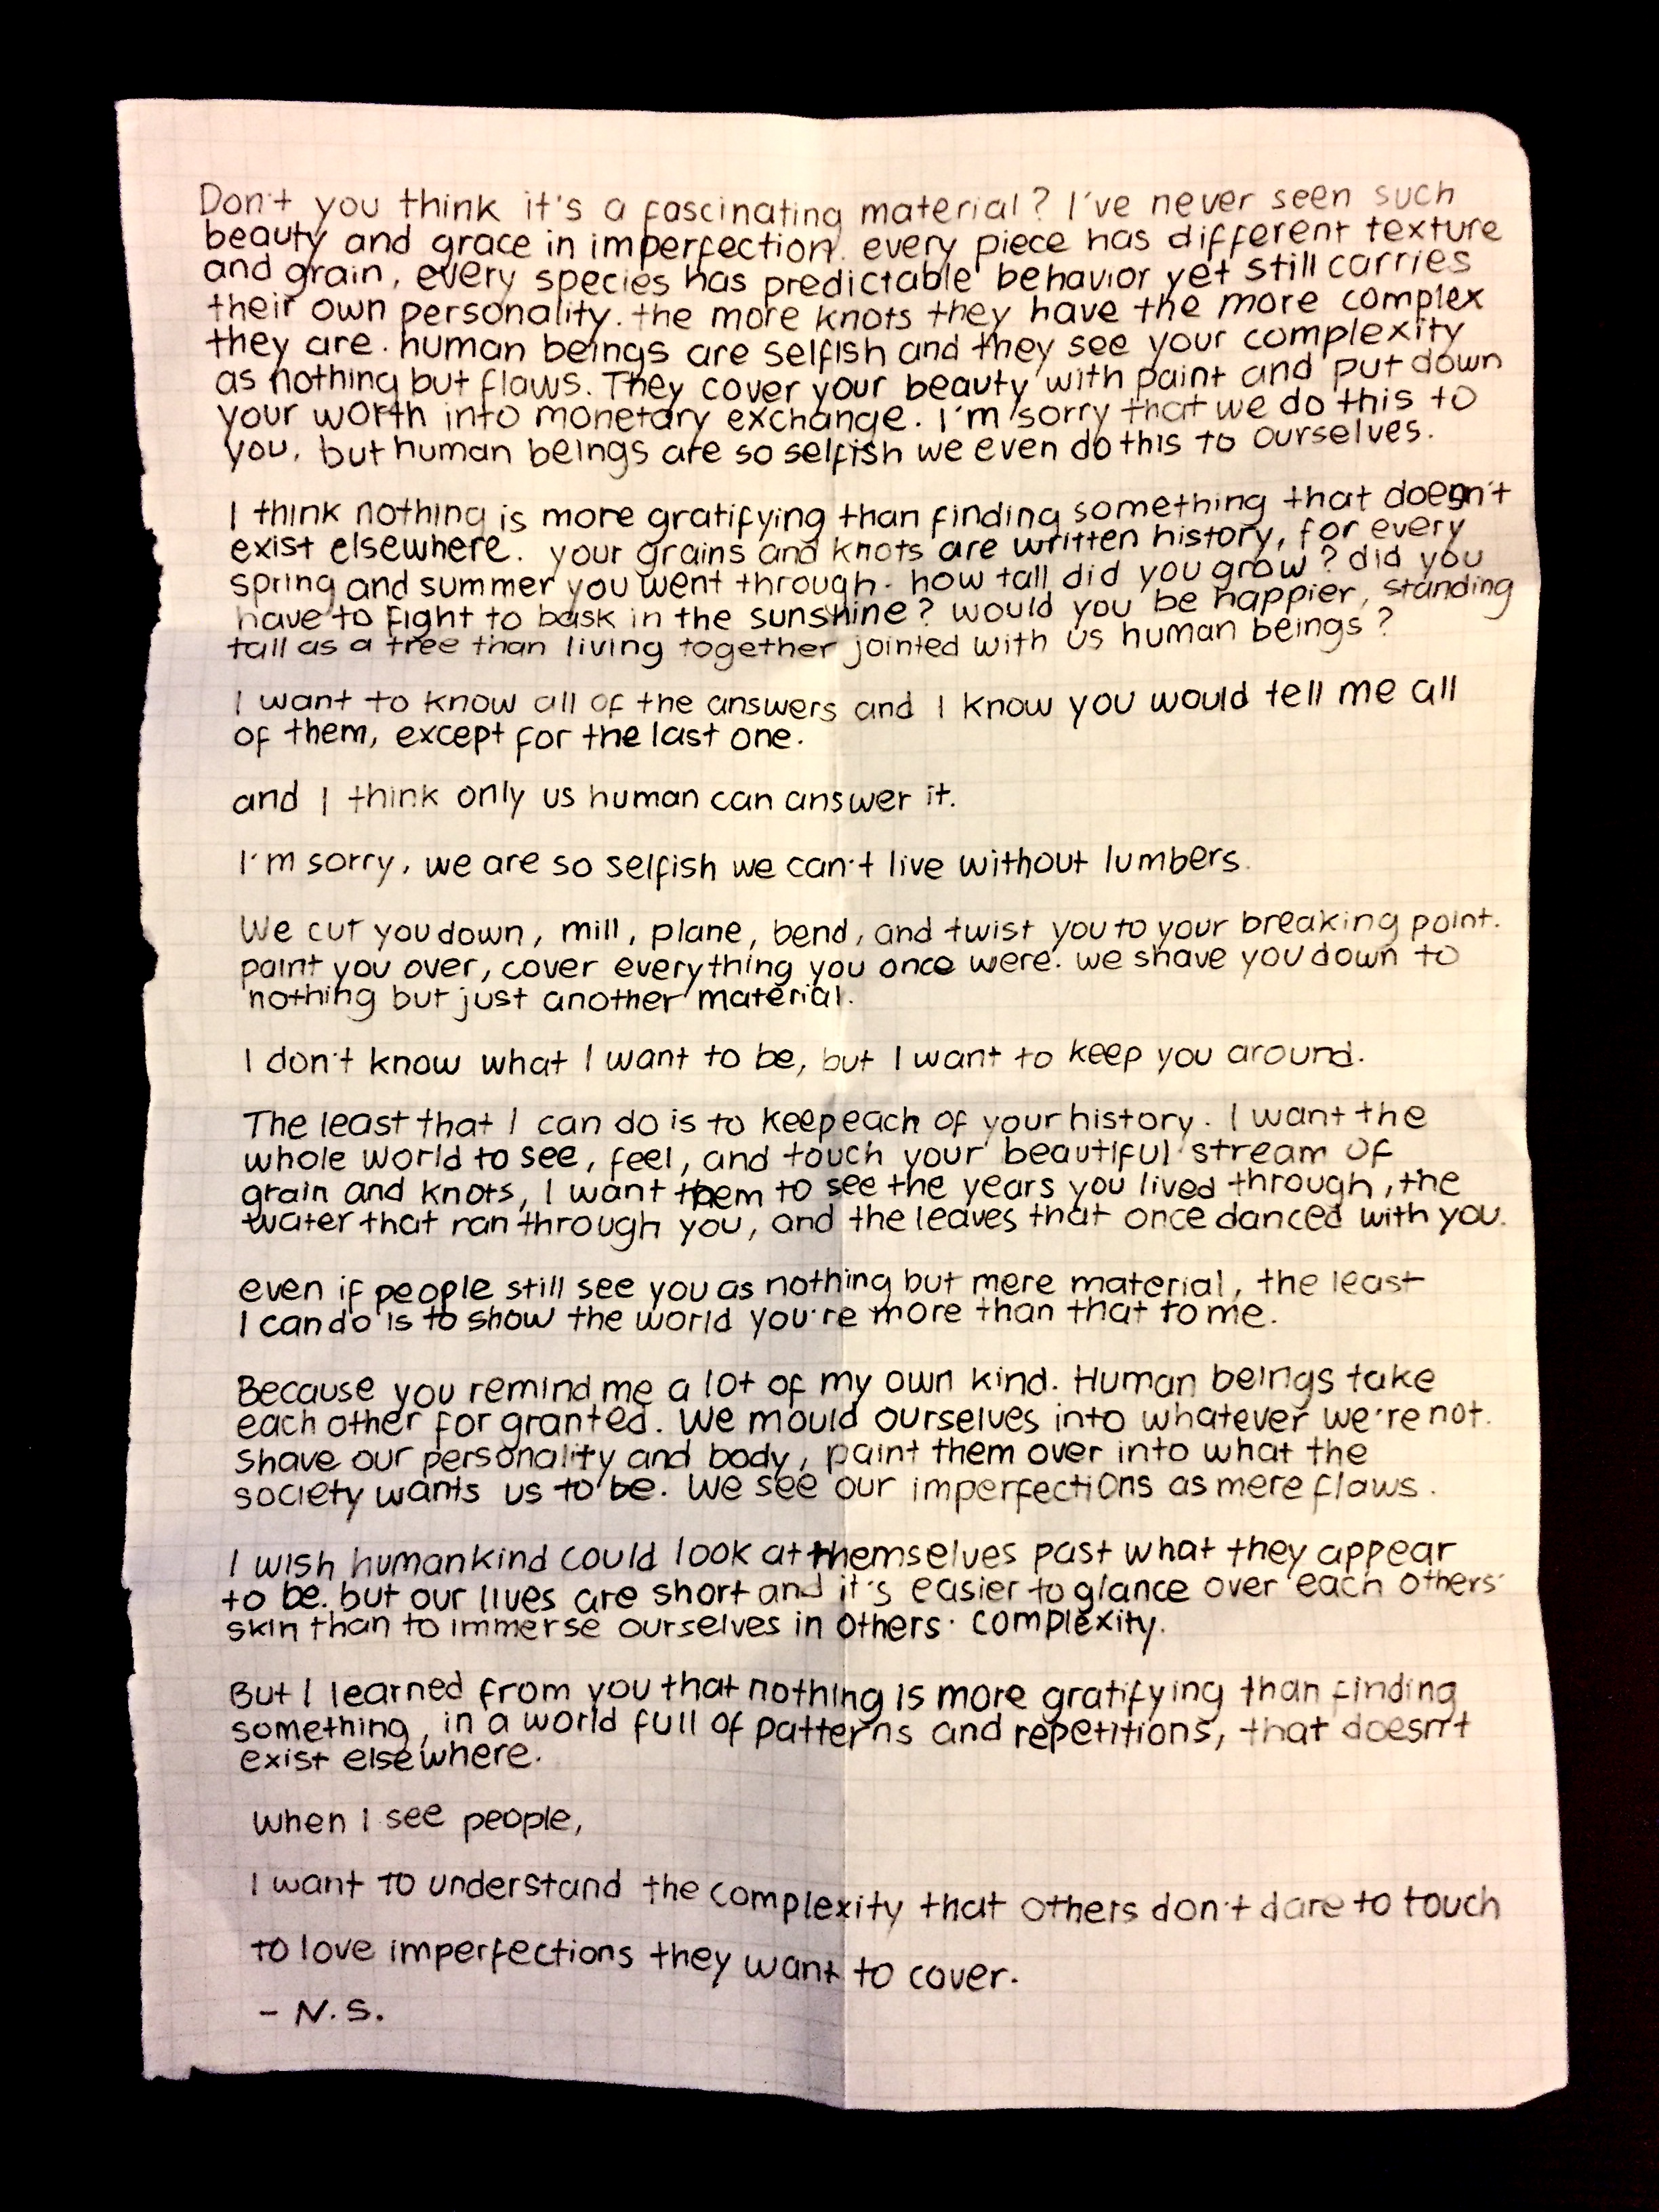 Don't you think it's a fascinating material? I've never seen such
beauty and grace in imperfection. every piece has different texture
and grain, every species has predictable behavior yet still carries
their own personality. the more knots they have the more complex
they are. human beings are selfish and they see your complexity
as nothing but flaws. They cover your beauty with paint and put down
your worth into monetary exchange. I'm sorry that we do this to
you, but human beings are so selfish we even do this to ourselves.
I think nothing is more gratifying than finding something that doesn't
exist elsewhere. your grains and knots are written history, for every
spring and summer you went through. how tall did you grow? did you
have to fight to bask in the sunshine? would you be happier, standing
tall as a tree than living together jointed with us human beings?
I want to know all of the answers and I know you would tell me all
of them, except for the last one.
and I think only us human can answer it.
I'm sorry, we are so selfish we can't live without lumbers.
We cut you down, mill, plane, bend, and twist you to your breaking point.
paint you over, cover everything you once were. we shave you down to
nothing but just another material.
I don't know what I want to be, but I want to keep you around.
The least that I can do is to keep each of your history. I want the
whole world to see, feel, and touch your beautiful stream of
grain and knots, I want them to see the years you lived through, the
water that ran through you, and the leaves that once danced with you.
even if people still see you as nothing but mere material, the least
I can do is to show the world you're more than that to me.
Because you remind me a lot of my own kind. Human beings take
each other for granted. We mould ourselves into whatever we're not.
Shave our personality and body, paint them over into what the
society wants us to be. We see our imperfections as mere flaws.
I wish humankind could look at themselves past what they appear
to be. but our lives are short and it's easier to glance over each others'
skin than to immerse ourselves in others' complexity.
But I learned from you that nothing is more gratifying than finding
something, in a world full of patterns and repetitions, that doesn't
exist elsewhere.
When I see people,
I want to understand the complexity that others don't dare to touch
to love imperfections they want to cover.
- N.S.